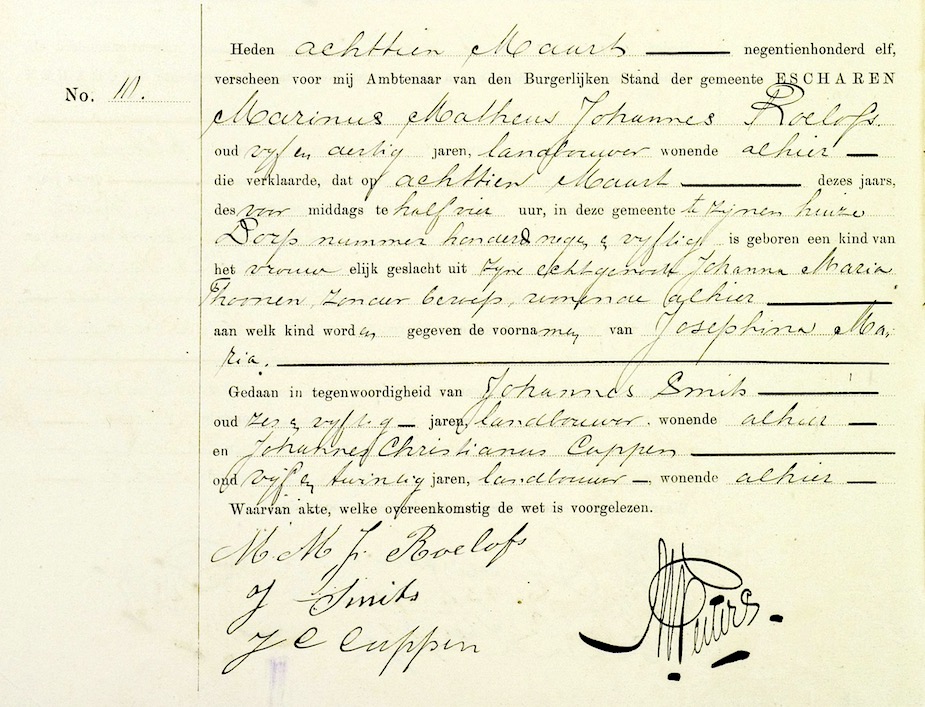 Heden achttien Maart negentienhonderd elf,
verscheen voor mij Ambtenaar van den Burgerlijken Stand der gemeente ESCHAREN
No. 10.
Marinus Matheus Johannes Roelofs.
oud vyf en dertig jaren, landbouwer wonende alhier
die verklaarde, dat op achttien Maart dezes jaars,
des voor middags te half vier uur, in deze gemeente te zijnen huize
Dorp nummer honderd negen & vyftig is geboren een kind van
het vrouw elijk geslacht uit zyne echtgenoote Johanna Maria
Thoonen, zonder beroep, wonende alhier
aan welk kind worden gegeven de voornamen van Josephina Ma,
ria.
Gedaan in tegenwoordigheid van Johannes Smits
oud zes & vyftig jaren, landbouwer. wonende alhier
en Johannes Christianus Cuppen
oud vyf en twintig jaren, landbouwer, wonende alhier
Waarvan akte, welke overeenkomstig de wet is voorgelezen.
M M J. Roelofs
J Smits
J C Cuppen